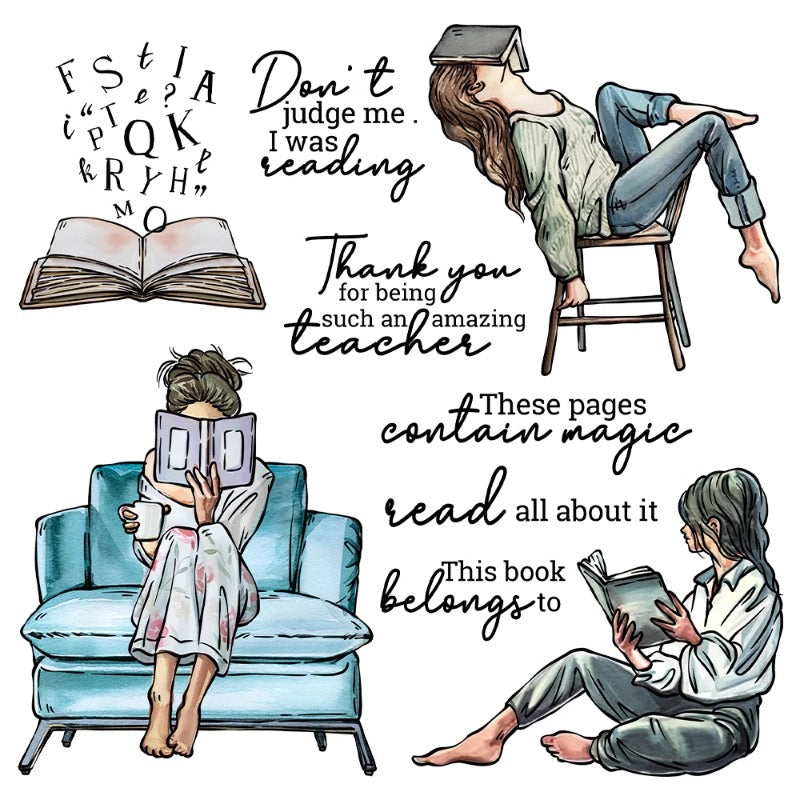 F S t I A
i “ P T e ?
Q K
k R Y H t ”
M O
Don't
judge me .
I was
reading
Thank you
for being
such an amazing
teacher
These pages
contain magic
read all about it
This book
belongs to